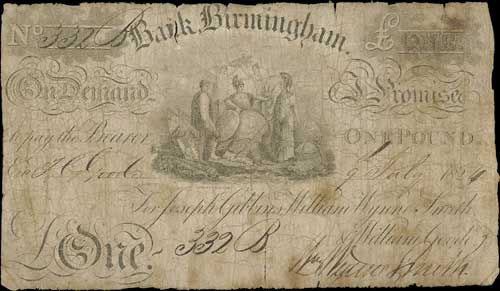 No 332 B Bank, Birmingham. £ ONE
On Demand I Promise
to pay the Bearer ONE POUND.
Ent. July 1824
For Joseph Gibbins, William Wynne Smith
& William Goode
£ One. 332 B
Smith